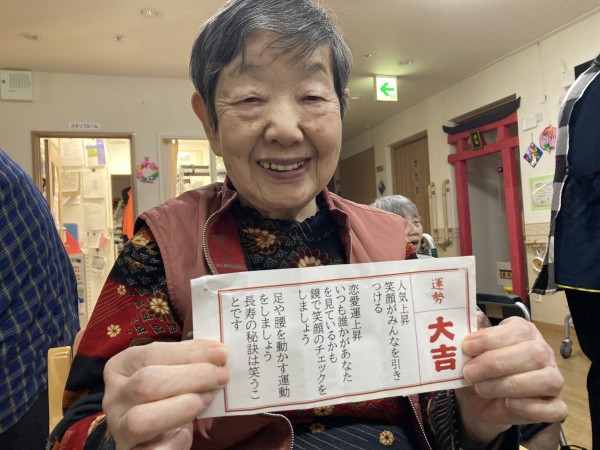 スタッフルーム
運勢
大吉
人気上昇
笑顔がみんなを引き
つける
恋愛運上昇
いつも誰かがあなた
を見ているかも
鏡で笑顔のチェックを
しましょう
足や腰を動かす運動
をしましょう
長寿の秘訣は笑うこ
とです